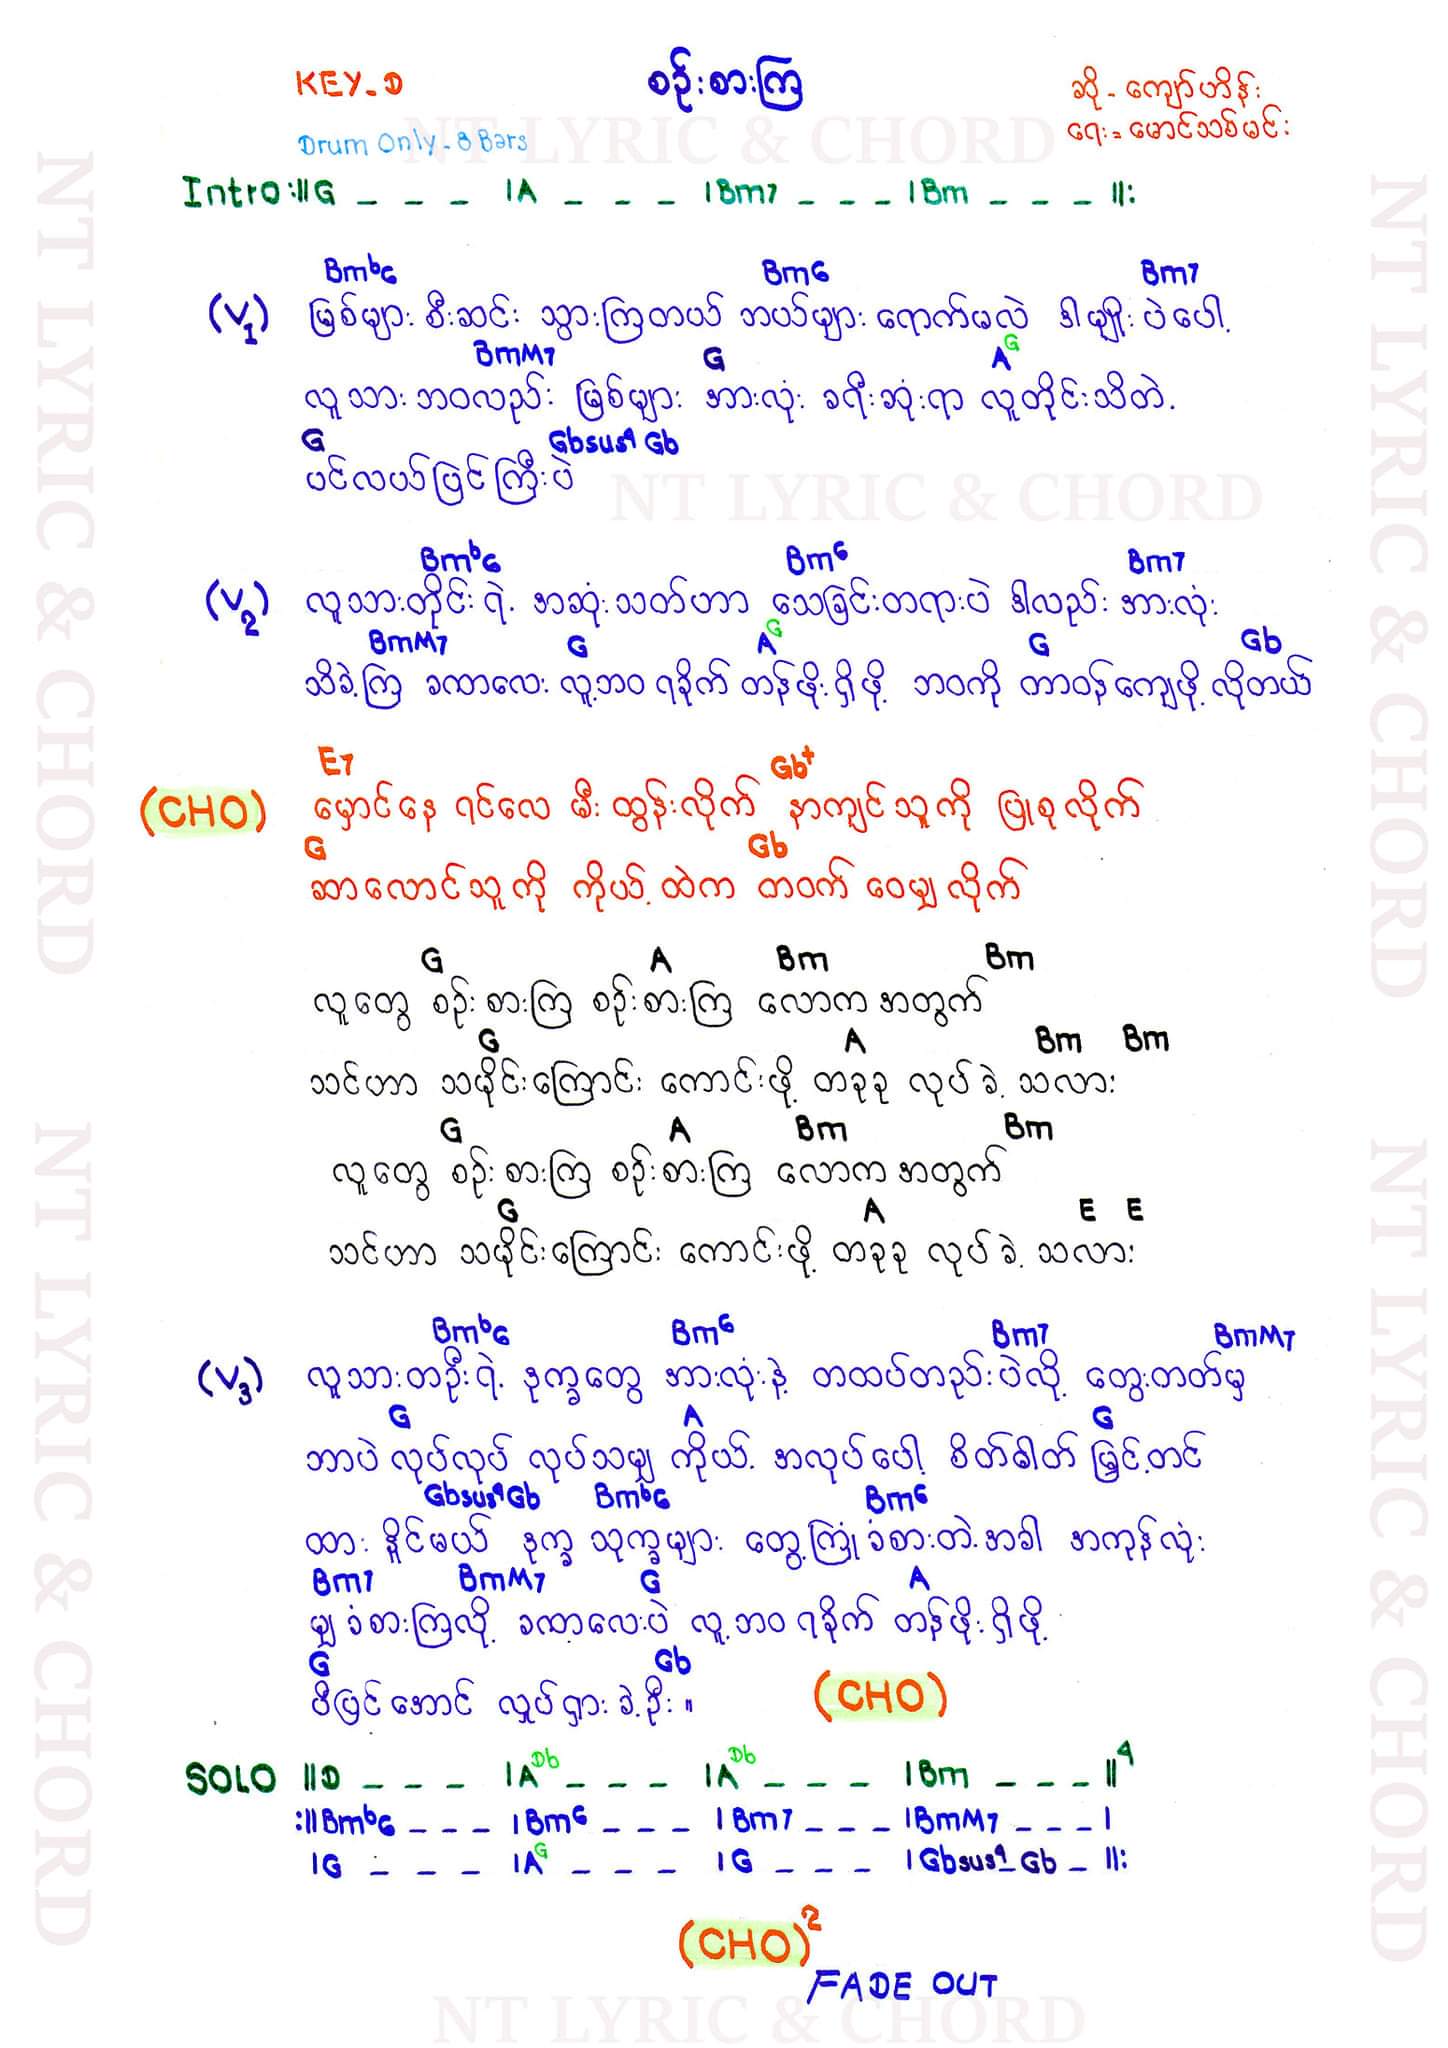 KEY_D
စဉ်းစားကြ
ဆို - ကျော်ဟိန်း
Drum Only - 8 Bars
ရေး = မောင်သစ်မင်း
NT LYRIC & CHORD
Intro :||G _ _ _ |A _ _ _ |Bm7 _ _ _ |Bm _ _ _ ||:
Bmb6 Bm6 Bm7
(V1) မြစ်များ စီးဆင်း သွားကြတယ် ဘယ်များ ရောက်မလဲ ဒါမျိုး ပဲပေါ့
BmM7 G AG
လူသား ဘဝလည်း မြစ်များ အားလုံး ခရီးဆုံးရာ လူတိုင်းသိတဲ့
G Gbsus4 Gb
ပင်လယ်ပြင်ကြီးပဲ
NT LYRIC & CHORD
Bmb6 Bm6 Bm7
(V2) လူသားတိုင်းရဲ့ အဆုံးသတ်ဟာ သေခြင်းတရားပဲ ဒါလည်း အားလုံး
BmM7 G AG G Gb
သိခဲ့ကြ ခဏလေး လူ့ဘဝ ရခိုက် တန်ဖိုးရှိဖို့ ဘဝကို တာဝန်ကျေဖို့ လိုတယ်
E7 Gb+
(CHO) မှောင်နေ ရင်လေ မီး ထွန်းလိုက် နာကျင်သူကို ပြုစုလိုက်
G Gb
ဆာလောင်သူကို ကိုယ့်ထဲက တဝက် ဝေမျှလိုက်
G A Bm Bm
လူတွေ စဉ်းစားကြ စဉ်းစားကြ လောကအတွက်
G A Bm Bm
သင်ဟာ သမိုင်းကြောင်း ကောင်းဖို့ တခုခု လုပ်ခဲ့သလား
G A Bm Bm
လူတွေ စဉ်းစားကြ စဉ်းစားကြ လောကအတွက်
G A E E
သင်ဟာ သမိုင်းကြောင်း ကောင်းဖို့ တခုခု လုပ်ခဲ့သလား
Bmb6 Bm6 Bm7 BmM7
(V3) လူသားတဦးရဲ့ ဒုက္ခတွေ အားလုံးနဲ့ တထပ်တည်းပဲလို့ တွေးကတ်မှ
G A G
ဘာပဲ လုပ်လုပ် လုပ်သမျှ ကိုယ့် အလုပ်ပေါ့ စိတ်ဓါတ် မြှင့်တင်
Gbsus4 Gb Bmb6 Bm6
ထား နိူင်မယ် ဒုက္ခ သုက္ခများ တွေ့ကြုံခံစားတဲ့အခါ အကုန်လုံး
Bm7 BmM7 G A
မျှ ခံစားကြလို့ ခဏလေးပဲ လူ့ဘဝ ရခိုက် တန်ဖိုးရှိဖို့
G Gb
ဗီပြင်အောင် လှုပ်ရှားခဲ့ဦး။ (CHO)
SOLO ||D _ _ _ |ADb _ _ _ |ADb _ _ _ |Bm _ _ _ ||4
:||Bmb6 _ _ _ |Bm6 _ _ _ |Bm7 _ _ _ |BmM7 _ _ _ |
|G _ _ _ |AG _ _ _ |G _ _ _ |Gbsus4 _ Gb _ ||:
(CHO)2
FADE OUT
NT LYRIC & CHORD
NT LYRIC & CHORD
NT LYRIC & CHORD
NT LYRIC & CHORD
NT LYRIC & CHORD